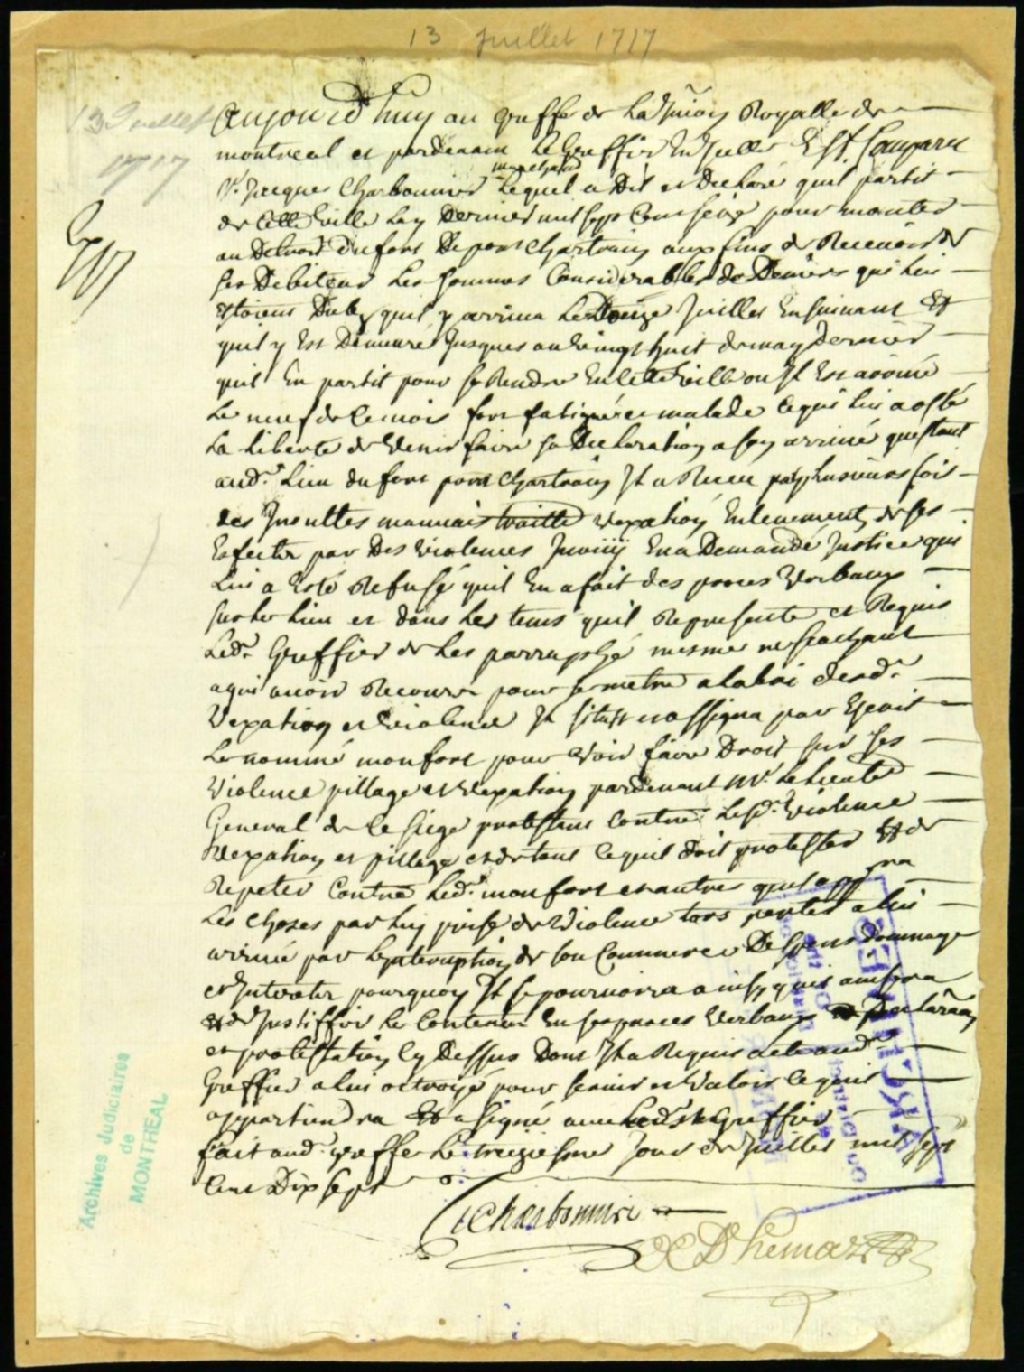 13 Juillet 1717
13 Juillet
1717
Aujourd'huy au greffe de la Jurion Royalle de
montreal et pardevant Le Greffier En Icelle Est Comparu
Sr. Jacques Charbonnier marchand Lequel a Dit et Declaré quil partit
de Cette Ville Lan Dernier mil sept Cent seize pour monter
au Detroit du fort De pontchartrain aux fins de Recevoir de
ses Debiteurs Les sommes Considerables de Deniers qui Luy
Estoient Dubs quil y arriva Le Douze Juillet Ensuivant Et
quil y Est Demeuré Jusques au vingt huit de may Dernier
quil En partit pour se Rendre En Cette Ville ou Il Est arrivé
Le neuf de ce mois fort fatigué et malade ce qui lui a osté
La liberté de venir faire sa Declaration a son arrivé questant
aud. Lieu du fort pontchartrain Il a Receu plusieurs fois
des Insultes mauvais traitté vexation Enlevement de ses
Effects par Des violences Inoüy En a Demandé Justice qui
Lui a Esté Refusé quil En a fait des proces verbaux
sur les Lieu et dans Les tems quil Represente et Requis
Led. Greffier de Les parrapher mesme ne scachant
a qui avoir Recours pour se mettre a labri desd.
Vexation et violence Il fit assigner par Ecrit
Le nommé monfort pour voir faire Droit sur ses
Violence pillage et vexation pardevant Mr. Le Lieuten
General de ce siege protestant Contre Lesd. violence
vexation et pillage et de tout ce quil doit protester Et de
Repeter Contre Led. monfort et autres quil appra
Les choses par luy prise de violence tors pertes a lui
arrivé par Linteruption de son Commerce Depens Dommage
et Interests pourquoy Il se pourvoira ainsy quil avisera
Et de Justiffier Le Contenu En ses proces verbaux Declaraon
et protestation Cy Dessus Dont Il a Requis acte aud.
Greffier a lui octroyé pour servir et valoir ce quil
appartiendra Et a signé avec Led. Greffier
fait aud. greffe Le treizieme Jour de Juillet mil sept
Cent Dix sept
Charbonnier
Archives Judiciaires
de
MONTREAL
ARCHIVES